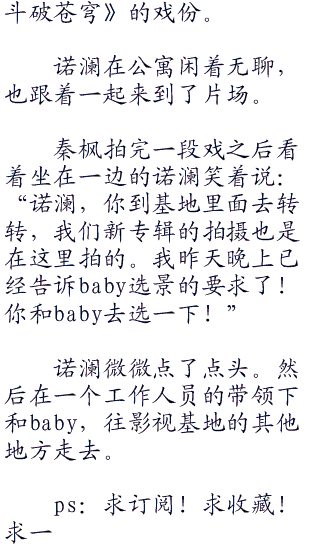 斗破苍穹》的戏份。
诺澜在公寓闲着无聊，
也跟着一起来到了片场。
秦枫拍完一段戏之后看
着坐在一边的诺澜笑着说：
“诺澜，你到基地里面去转
转，我们新专辑的拍摄也是
在这里拍的。我昨天晚上已
经告诉baby选景的要求了！
你和baby去选一下！”
诺澜微微点了点头。然
后在一个工作人员的带领下
和baby，往影视基地的其他
地方走去。
ps：求订阅！求收藏！
求一